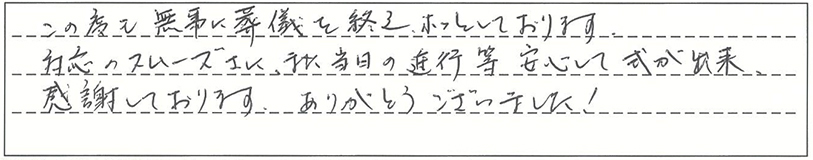 この度も無事に葬儀を終え、ホッとしております。
対応のスムーズさに、また当日の進行等安心して式が出来、
感謝しております。ありがとうございました！